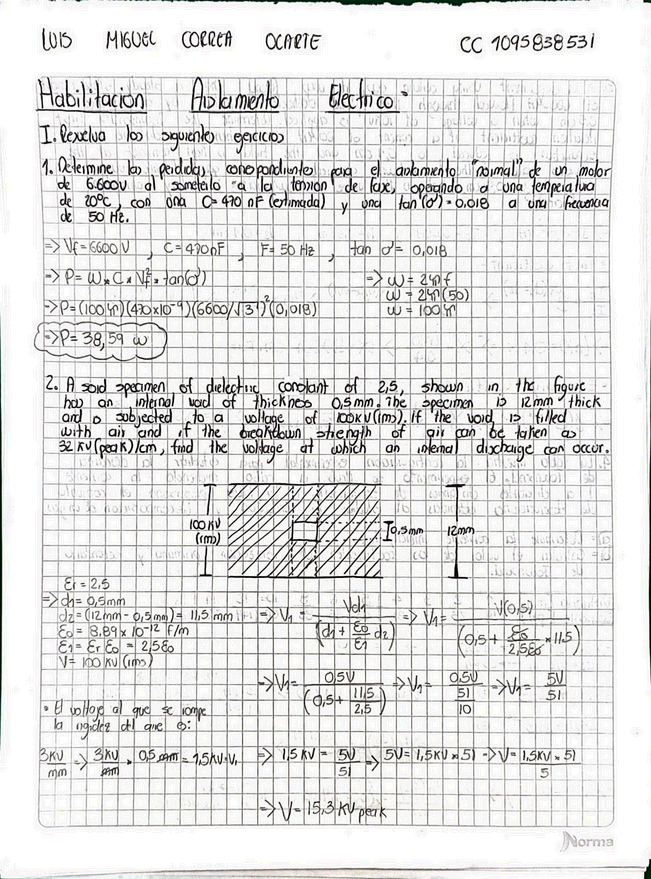 LUIS MIGUEL CORREA OCARTE CC 1095838531
Habilitacion Aislamiento Electrico
I. Resuelva los siguientes ejercicios
1. Determine las perdidas correspondientes para el aislamiento "normal" de un motor
de 6.600V al someterlo a la tension de fase, operando a una temperatura
de 20°C, con una C=470 nF (estimada) y una tan(σ)=0.018 a una frecuencia
de 50 Hz.
=> Vf=6600 V , C=470nF , F=50 Hz , tan σ=0,018
=> P=W*C*Vf²*tan(σ) => ω=2πf
ω=2π(50)
=> P=(100π)(470x10⁻⁹)(6600/√3)²(0,018) ω=100π
=> P=38,59 ω
2. A solid specimen of dielectric constant of 2,5, shown in the figure
has an internal void of thickness 0,5mm. The specimen is 12mm thick
and is subjected to a voltage of 100KV(rms). If the void is filled
with air and if the breakdown strength of air can be taken as
32 KV(peak)/cm, find the voltage at which an internal discharge can occur.
100 KV
(rms)
0,5mm
12mm
Er=2,5
=> d1=0,5mm
d2=(12mm-0,5mm)=11,5 mm
ε0=8,89x10⁻¹² f/m
ε1=εr ε0=2,5ε0
V=100 KV(rms)
=> V1=Vd1/(d1+ε0/ε1 d2) => V1=V(0,5)/(0,5+ε0/2,5ε0*11,5)
=> V1=0,5V/(0,5+11,5/2,5) => V1=0,5V/(51/10) => V1=5V/51
• El voltaje al que se rompe
la rigidez del aire es:
3KV/mm => 3KV/mm * 0,5mm=1,5KV=V1 => 1,5 KV=5V/51 => 5V=1,5KV*51 => V=1,5KV*51/5
=> V=15,3 KV peak
Norma